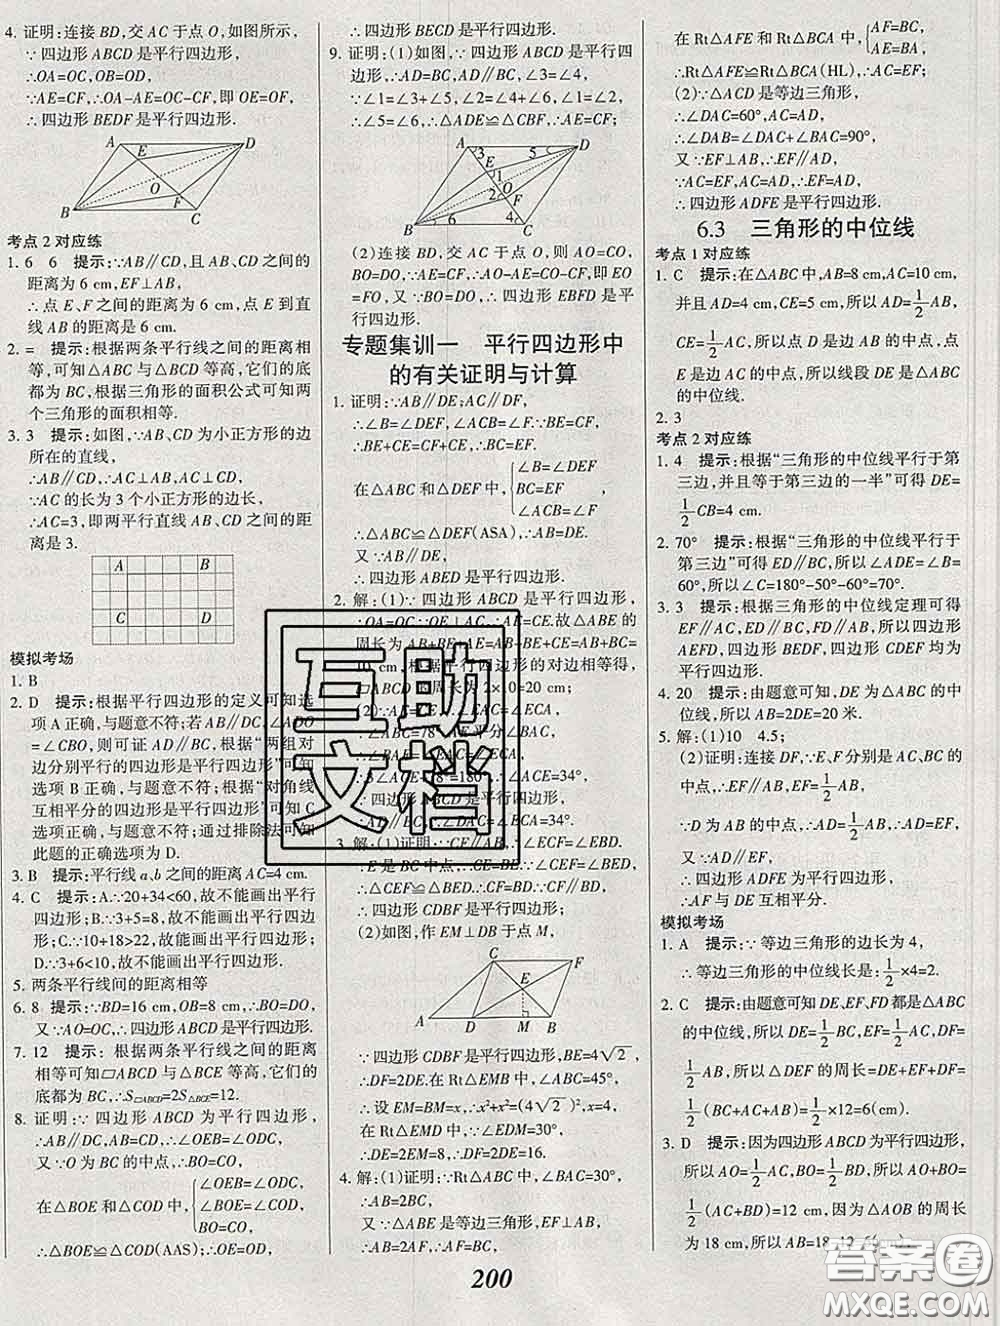 4. 证明:连接 BD,交 AC 于点 O,如图所示,
∵四边形 ABCD 是平行四边形,
∴OA=OC,OB=OD,
∵AE=CF,∴OA-AE=OC-CF,即 OE=OF,
∴四边形 BEDF 是平行四边形.
A D E O B F C
考点 2 对应练
1. 6 6 提示:∵AB∥CD,且 AB、CD 之间的
距离为 6 cm,EF⊥AB,
∴点 E、F 之间的距离为 6 cm,点 E 到直
线 AB 的距离是 6 cm.
2. = 提示:根据两条平行线之间的距离相
等,可知△ABC 与△DBC 等高,它们的底
都为 BC,根据三角形的面积公式可知两
个三角形的面积相等.
3. 3 提示:如图,AB、CD 为小正方形的边
所在的直线,
∴AB∥CD,∴AC⊥AB,AC⊥CD,
∵AC 的长为 3 个小正方形的边长,
∴AC=3,即两平行直线 AB、CD 之间的距
离是 3.
A B
C D
模拟考场
1. B
2. D 提示:根据平行四边形的定义可知选
项 A 正确,与题意不符;若 AO=OC,∠ADO
=∠CBO,则可证 AD∥BC,根据“两组对
边分别平行的四边形是平行四边形”可知
选项 B 正确,与题意不符;根据“对角线
互相平分的四边形是平行四边形”可知 C
选项正确,与题意不符;通过排除法可知
此题的正确选项为 D.
3. B 提示:平行线 a、b 之间的距离 AC=4 cm.
4. C 提示:A∵20+34<60,故不能画出平行
四边形;B∵3+5=8,故不能画出平行四边
形;C.∵10+18>22,故能画出平行四边形;
D∵3+6<10,故不能画出平行四边形.
5. 两条平行线间的距离相等
6. 8 提示:∵BD=16 cm,OB=8 cm,∴BO=DO,
又∵AO=OC,∴四边形 ABCD 是平行四边形.
7. 12 提示:根据两条平行线之间的距离
相等可知▱ABCD 与△BCE 等高,它们的
底都为 BC,∴S▱ABCD=2S△BCE=12.
8. 证明:∵四边形 ABCD 为平行四边形,
∴AB∥DC,AB=CD,∴∠OEB=∠ODC,
又∵O 为 BC 的中点,∴BO=CO,
在△BOE 和△COD 中,{∠OEB=∠ODC,
∠BOE=∠COD,
BO=CO,
∴△BOE≌△COD(AAS);∴OE=OD,
∴四边形 BECD 是平行四边形.
9. 证明:(1)如图,∵四边形 ABCD 是平行四
边形,∴AD=BC,AD∥BC,∴∠3=∠4,
∵∠1=∠3+∠5,∠2=∠4+∠6,∠1=∠2,
∴∠5=∠6,∴△ADE≌△CBF,∴AE=CF;
A 3 5 D E 1 O 2 F B 6 4 C
(2)连接 BD,交 AC 于点 O,则 AO=CO,
BO=DO,∵AE=CF,∴AO-AE=CO-CF,即 EO
=FO,又∵BO=DO,∴四边形 EBFD 是平
行四边形.
专题集训一 平行四边形中
的有关证明与计算
1. 证明:∵AB∥DE;AC∥DF,
∴∠B=∠DEF,∠ACB=∠F.∵BE=CF,
∴BE+CE=CF+CE,∴BC=EF.
在△ABC 和△DEF 中,{∠B=∠DEF
BC=EF,
∠ACB=∠F
∴△ABC≌△DEF(ASA),∴AB=DE.
又∵AB∥DE,
∴四边形 ABED 是平行四边形.
2. 解:(1)∵四边形 ABCD 是平行四边形,
∴OA=OC.∵OE⊥AC,∴AE=CE.故△ABE 的
周长为 AB+BE+AE=AB+BE+CE=AB+BC=
10 cm,根据平行四边形的对边相等得,
▱ABCD 的周长为 2×10=20 cm;
∠ECA,
∠ABC=78°
∠ACE=34°,
∴四边形 ABCD 是平行四边形,
∠BCA=∠ACE=34°.
3. 解:(1)证明:∵CF∥AB,∴∠ECF=∠EBD.
∵E 是 BC 中点,∴CE=BE.
∠BED,
∴△CEF≌△BED.∴CF=BD,
∴四边形 CDBF 是平行四边形;
(2)如图,作 EM⊥DB 于点 M,
C F E A D M B
∵四边形 CDBF 是平行四边形,BE=4√2,
∴DF=2DE.在 Rt△EMB 中,∠ABC=45°,
∴设 EM=BM=x,∴x²+x²=(4√2)²,∴x=4.
在 Rt△EMD 中,∵∠EDM=30°,
∴DE=2EM=8,∴DF=2DE=16.
4. 解:(1)证明:∵Rt△ABC,∠BAC=30°,
∴AB=2BC,
又∵△ABE 是等边三角形,EF⊥AB,
∴AB=2AF,∴AF=BC,
在 Rt△AFE 和 Rt△BCA 中,{AF=BC,
AE=BA,
∴Rt△AFE≌Rt△BCA(HL),∴AC=EF;
(2)∵△ACD 是等边三角形,
∴∠DAC=60°,AC=AD,
∴∠DAB=∠DAC+∠BAC=90°,
又∵EF⊥AB,∴EF∥AD,
∵AC=EF,AC=AD,∴EF=AD,
∴四边形 ADFE 是平行四边形.
6.3 三角形的中位线
考点 1 对应练
1. C 提示:在△ABC 中,AB=8 cm,AC=10 cm,
并且 AD=4 cm,CE=5 cm,所以 AD=1/2AB,
CE=1/2AC,所以点 D 是 AB 的中点,点
E 是 AC 的中点,所以线段 DE 是△ABC
的中位线.
2. 3
考点 2 对应练
1. 4 提示:根据“三角形的中位线平行于第
三边,并且等于第三边的一半”可得 DE=
1/2CB=4 cm.
2. 70° 提示:根据“三角形的中位线平行于
第三边”可得 ED∥BC,所以∠ADE=∠B=
60°,所以∠C=180°-50°-60°=70°.
3. 3 提示:根据三角形的中位线定理可得
EF∥AC,ED∥BC,DF∥AB,所以四边形
AEFD,四边形 EBFD,四边形 CDEF 均为
平行四边形.
4. 20 提示:由题意可知,DE 为△ABC 的中
位线,所以 AB=2DE=20 米.
5. 解:(1)10 4.5;
(2)证明:连接 DF,∵E、F 分别是 AC、BC 的
中点,∴EF∥AB,EF=1/2AB,
∵D 为 AB 的中点,∴AD=1/2AB,∴AD=EF,
又∵AD∥EF,
∴四边形 ADFE 为平行四边形,
∴AF 与 DE 互相平分.
模拟考场
1. A 提示:∵等边三角形的边长为 4,
∴等边三角形的中位线长是:1/2×4=2.
2. C 提示:由题意可知 DE、EF、FD 都是△ABC
的中位线,所以 DE=1/2BC,EF=1/2AC,DF=
1/2AB,所以△DEF 的周长=DE+EF+DF=
1/2(BC+AC+AB)=1/2×12=6(cm).
3. D 提示:因为四边形 ABCD 为平行四边形,
所以 AO=1/2AC,BO=1/2BD,所以 AO+BO=
1/2(AC+BD)=12 cm,因为△AOB 的周长
为 18 cm,所以 AB=18-12
200
互助
文档
答案圈
MXQE.COM